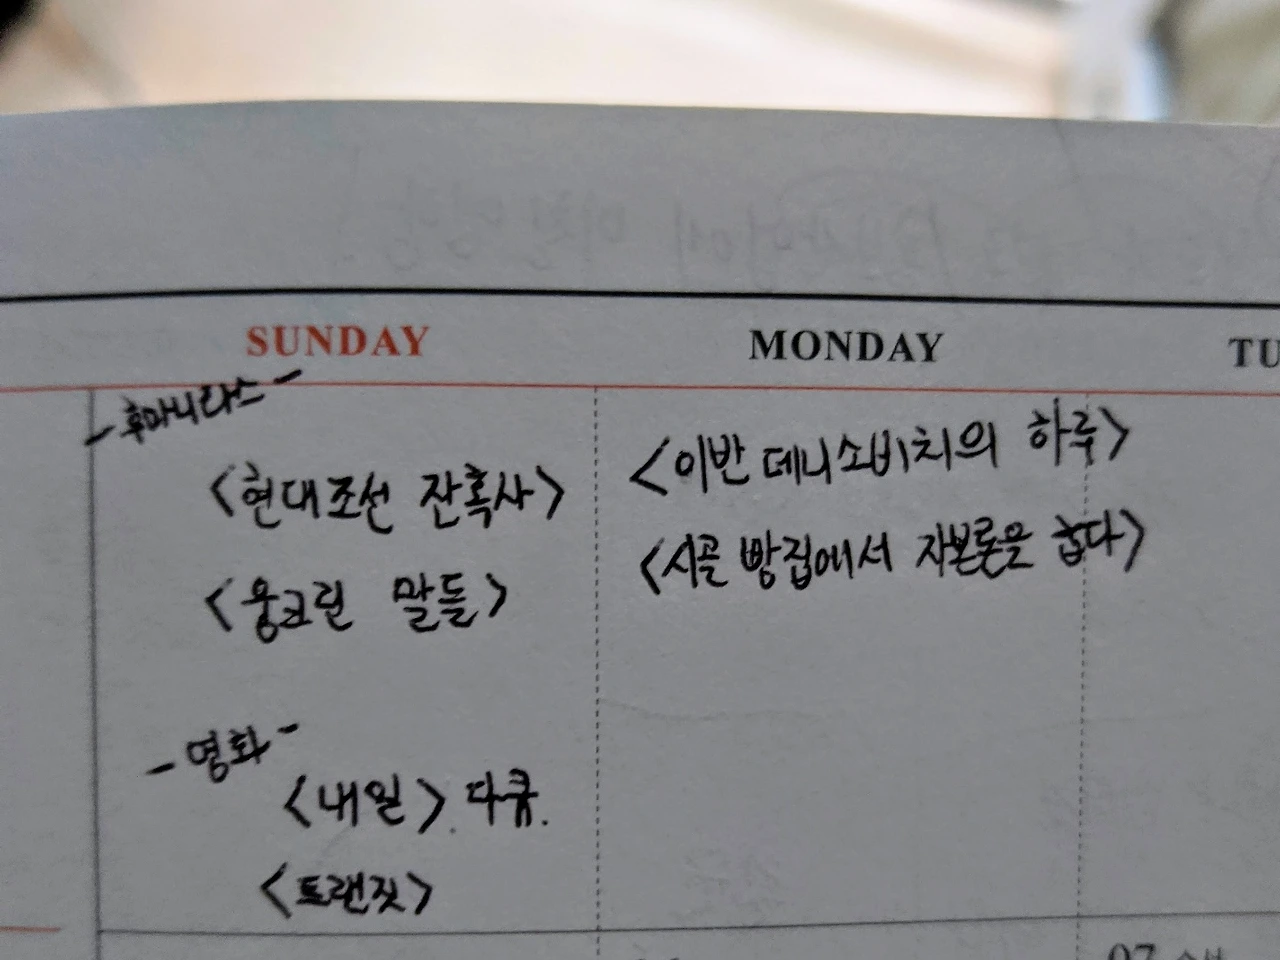 SUNDAY MONDAY TU
-후마니타스-
<현대조선 잔혹사>
<웅크린 말들>
-영화-
<내일>. 다큐.
<트랜짓>
<이반 데니소비치의 하루>
<시골 빵집에서 자본론을 굽다>
07